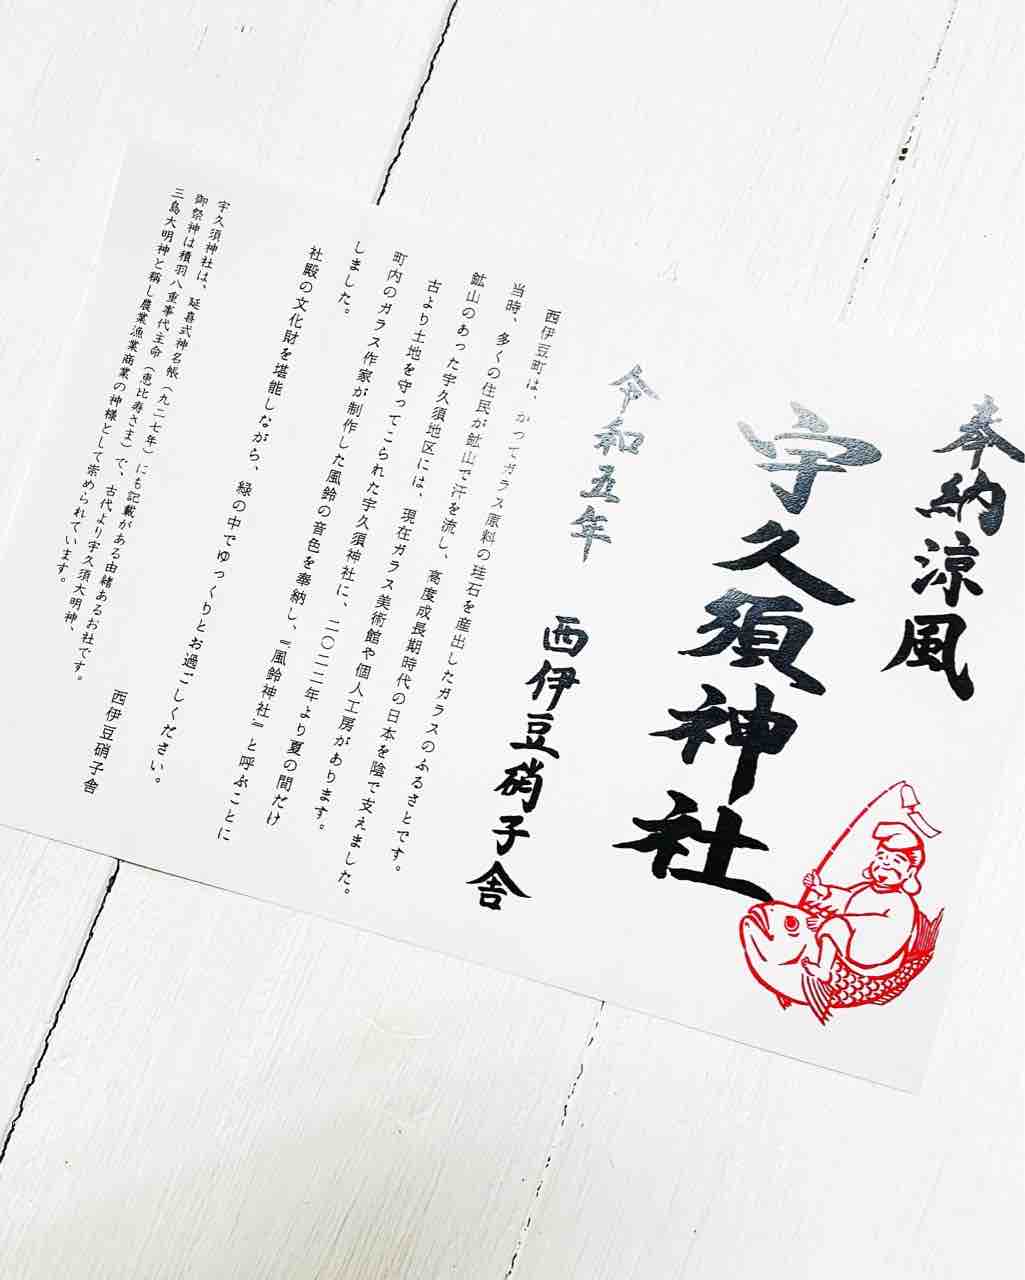 奉納涼風
宇久須神社
令和五年
西伊豆硝子舎
西伊豆町は、かつてガラス原料の珪石を産出したガラスのふるさとです。
当時、多くの住民が鉱山で汗を流し、高度成長期時代の日本を陰で支えました。
鉱山のあった宇久須地区には、現在ガラス美術館や個人工房があります。
古より土地を守ってこられた宇久須神社に、二〇二二年より夏の間だけ
町内のガラス作家が制作した風鈴の音色を奉納し、〝風鈴神社〟と呼ぶことに
しました。
社殿の文化財を堪能しながら、緑の中でゆっくりとお過ごしください。
西伊豆硝子舎
宇久須神社は、延喜式神名帳（九二七年）にも記載がある由緒あるお社です。
御祭神は積羽八重事代主命（恵比寿さま）で、古代より宇久須大明神、
三島大明神と称し農業漁業商業の神様として崇められています。